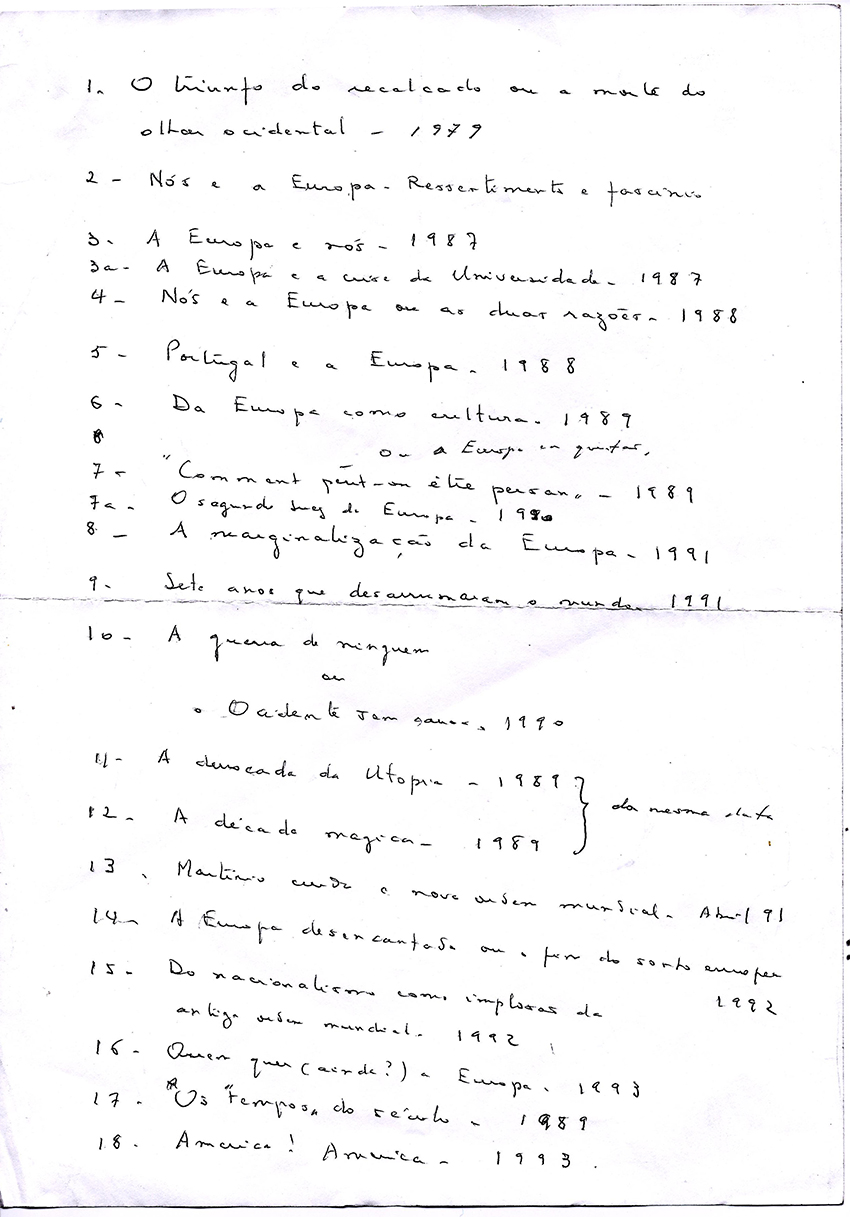 1. O triunfo do recalcado ou a morte do
olhar ocidental - 1979
2 - Nós e a Europa - Ressentimento e fascínio
3. A Europa e nós - 1987
3a - A Europa e a crise da Universidade - 1987
4 - Nós e a Europa ou as duas razões - 1988
5 - Portugal e a Europa - 1988
6 - Da Europa como cultura. 1989
ou a Europa em questão,
7 - "Comment peut-on être persan" - 1989
7a - O segundo da Europa - 1990
8 - A marginalização da Europa - 1991
9. Sete anos que desarrumaram o mundo 1991
10 - A guerra de ninguem
ou
o Ocidente sem 1990
11 - A derrocada da Utopia - 1989 } da mesma data
12 - A década magica - 1989
13. Martírio curdo e nova ordem mundial - Abril 91
14 - A Europa desencantada ou o fim do sonho europeu
1992
15 - Do nacionalismo como implosão da
antiga ordem mundial. 1992
16 - Quem quer (ainda?) a Europa. 1993
17 - Os "Tempos" do século - 1989
18. America! America - 1993.